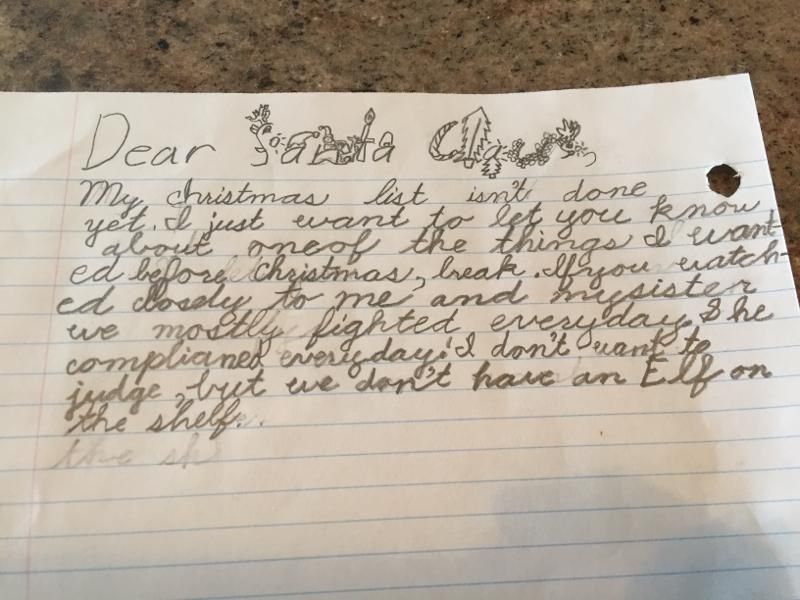 Dear Santa Claus,
My christmas list isn't done
yet. I just want to let you know
about one of the things I want-
ed before Christmas, break. If you watch-
ed closely to me and my sister
we mostly fighted everyday. She
complianed everyday! I don't want to
judge, but we don't have an Elf on
the shelf.
the sh